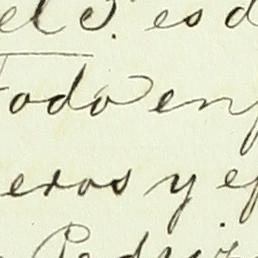 el S. es d
Todo en
eros y ef
Pedriz